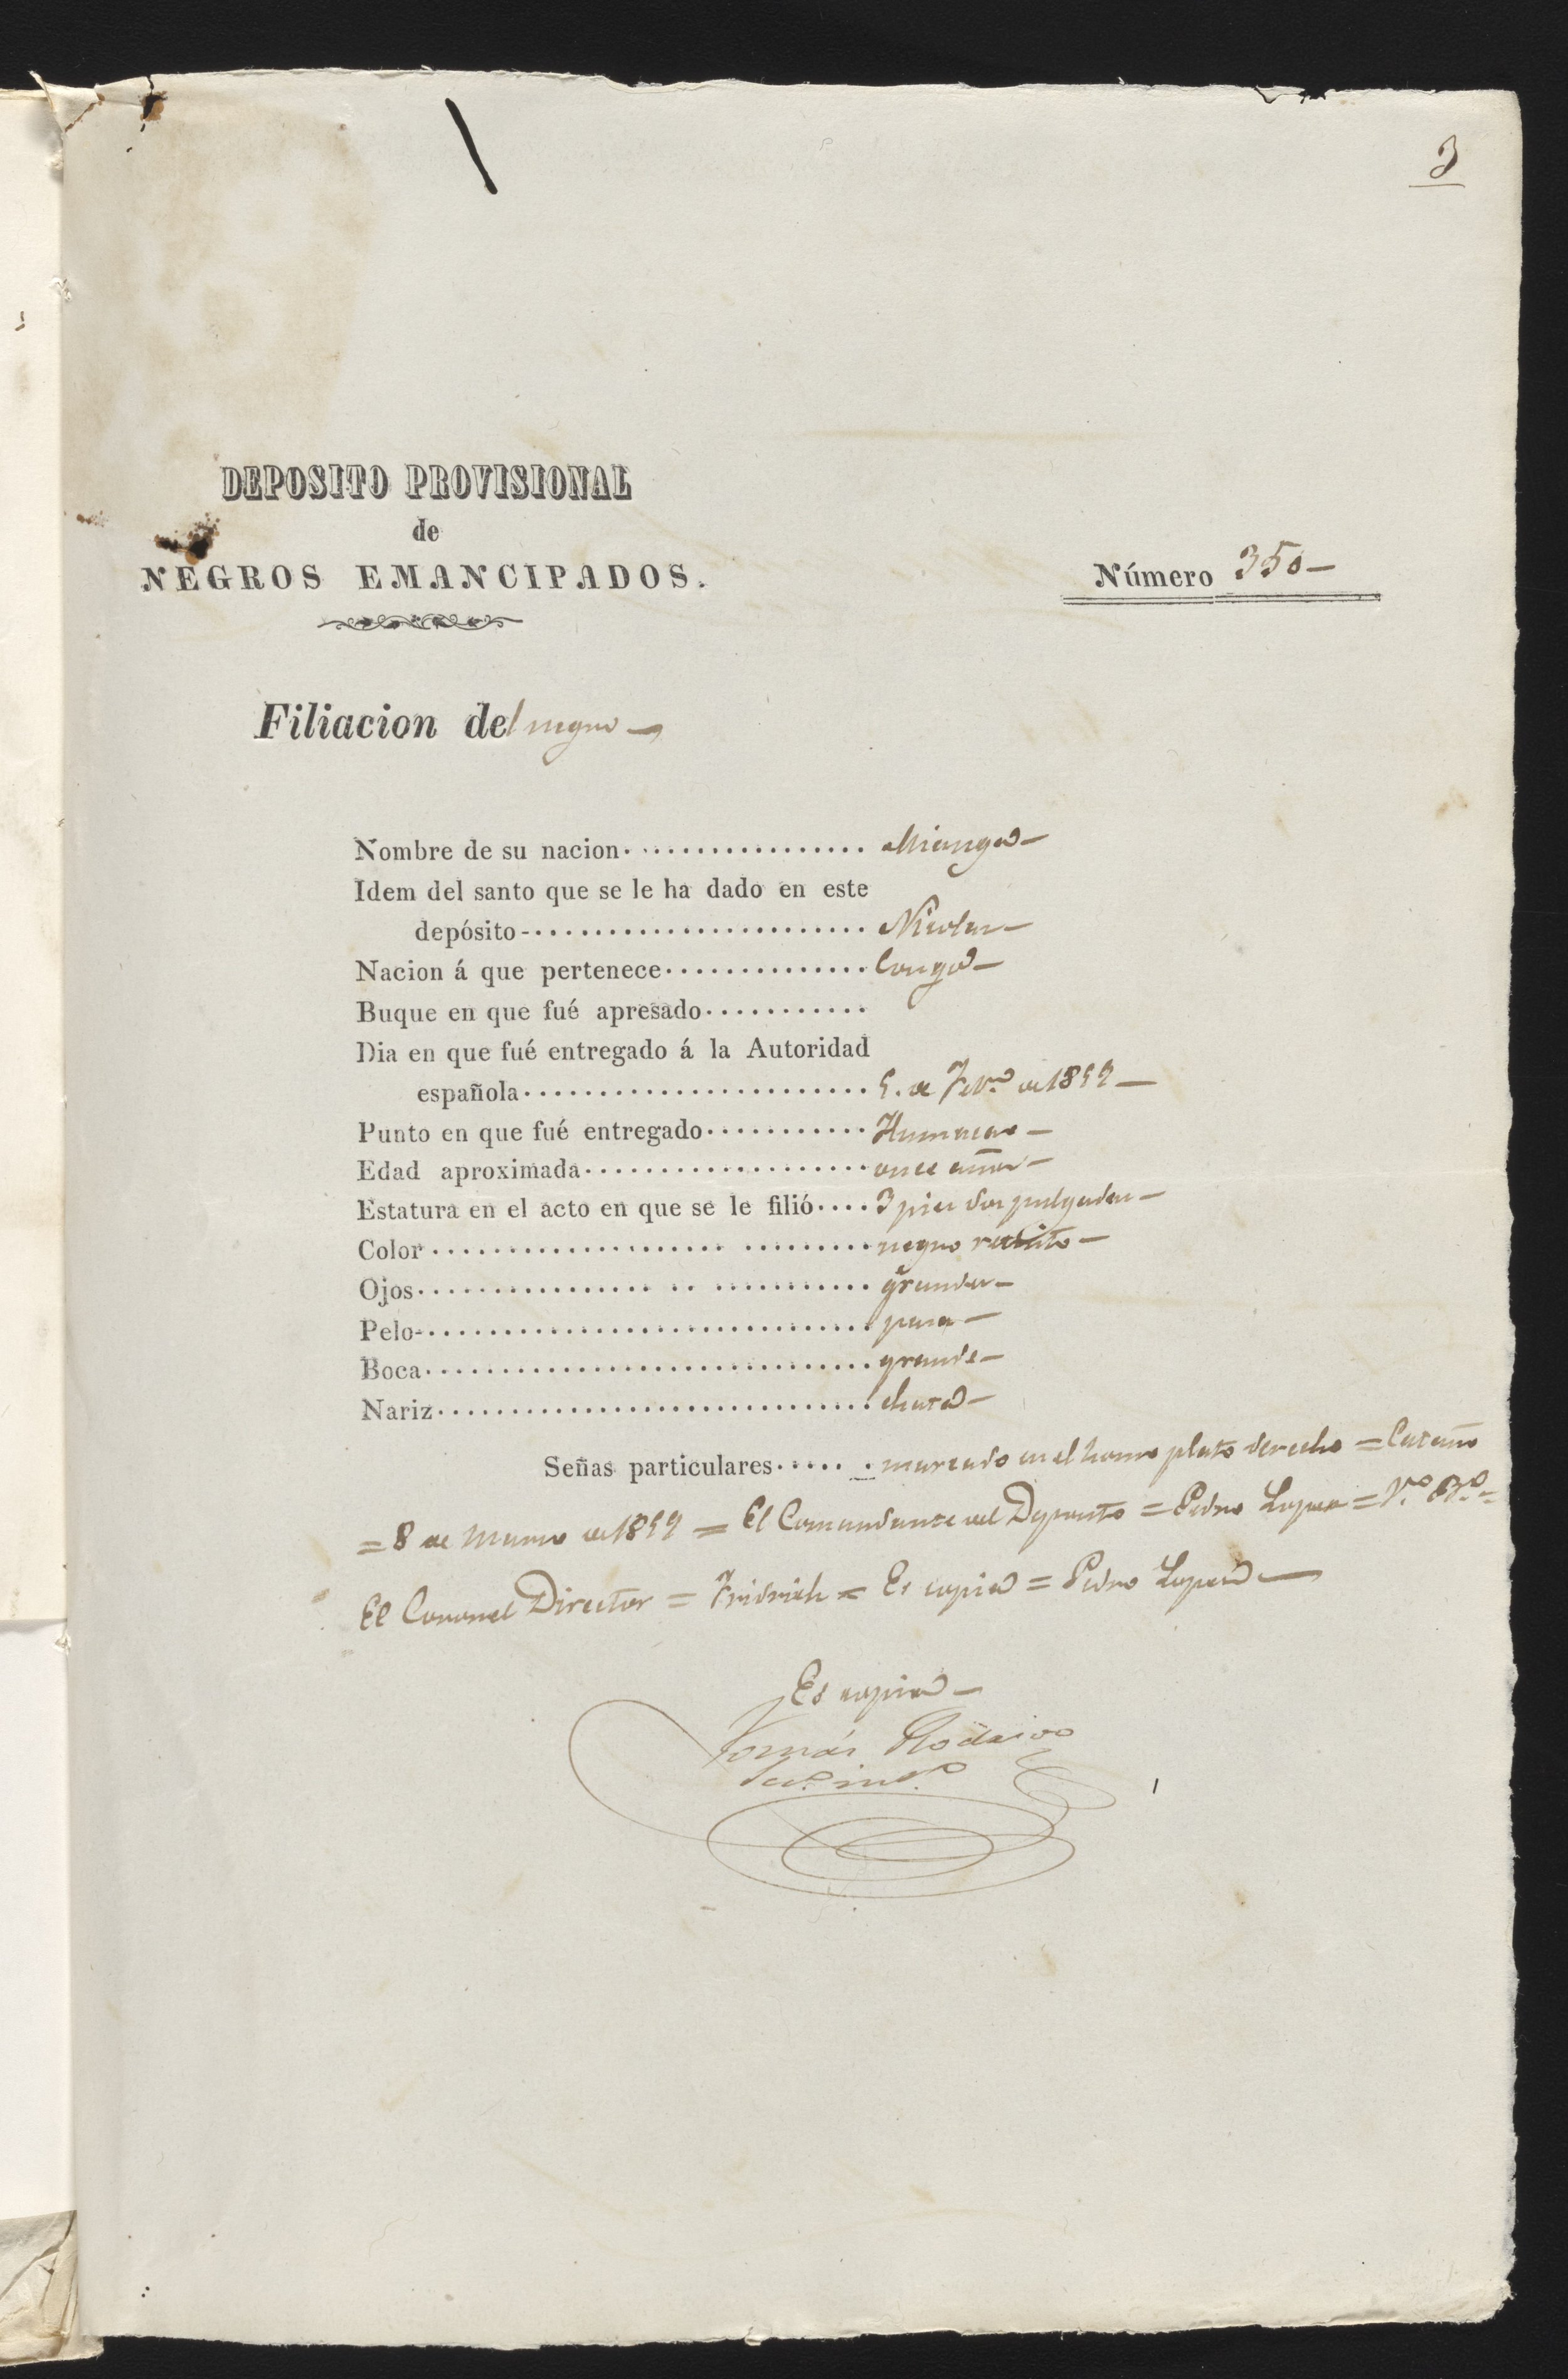 3
DEPOSITO PROVISIONAL
de
NEGROS EMANCIPADOS.
Número 350—
Filiacion del negro—
Nombre de su nacion................. Mianga—
Idem del santo que se le ha dado en este
depósito-....................... Nicolas—
Nacion á que pertenece.............. Congo—
Buque en que fué apresado...........
Dia en que fué entregado á la Autoridad
española........................ 5. de Febro. de 1859—
Punto en que fué entregado........... Humacao—
Edad aproximada.................... once años—
Estatura en el acto en que se le filió.... 3 pies dos pulgadas—
Color............................. negro retinto—
Ojos.............................. grandes—
Pelo-.............................. pasa—
Boca.............................. grande—
Nariz.............................. chata—
Señas particulares...... marcado en el homo plato derecho = Cataño
= 8 de Marzo de 1859 = El Comandante del Deposito = Pedro Lopez = V.º B.º =
El Coronel Director = Fridrich = Es copia = Pedro Lopez—
Es copia—
Tomás